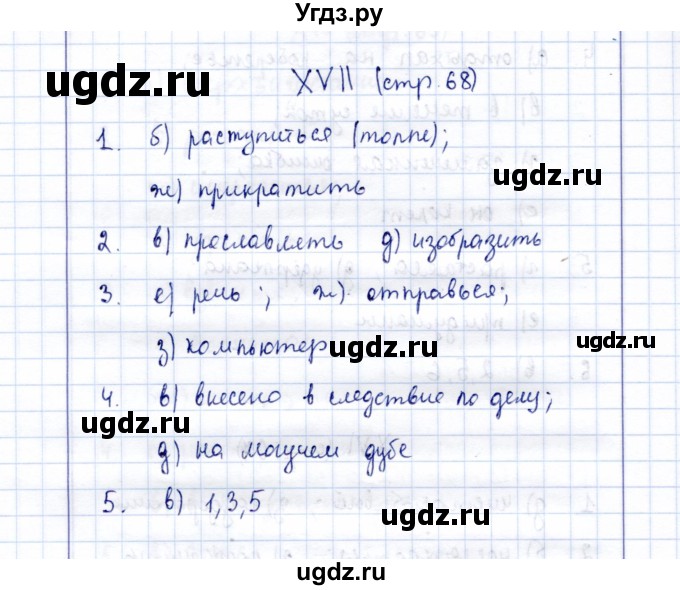 Угдз.ру
ugdz.ru
XVII (стр. 68)
1. б) раступиться (толпе);
ugdz.ru
ж) прикратить
2. в) прославлять д) изобразить
3. е) речь; ж) отправься;
з) компьютер
ugdz.ru
4. в) внесено в следствие по делу;
ugdz.ru
д) на могучем дубе
5. в) 1,3,5
ugdz.ru
ugdz.ru